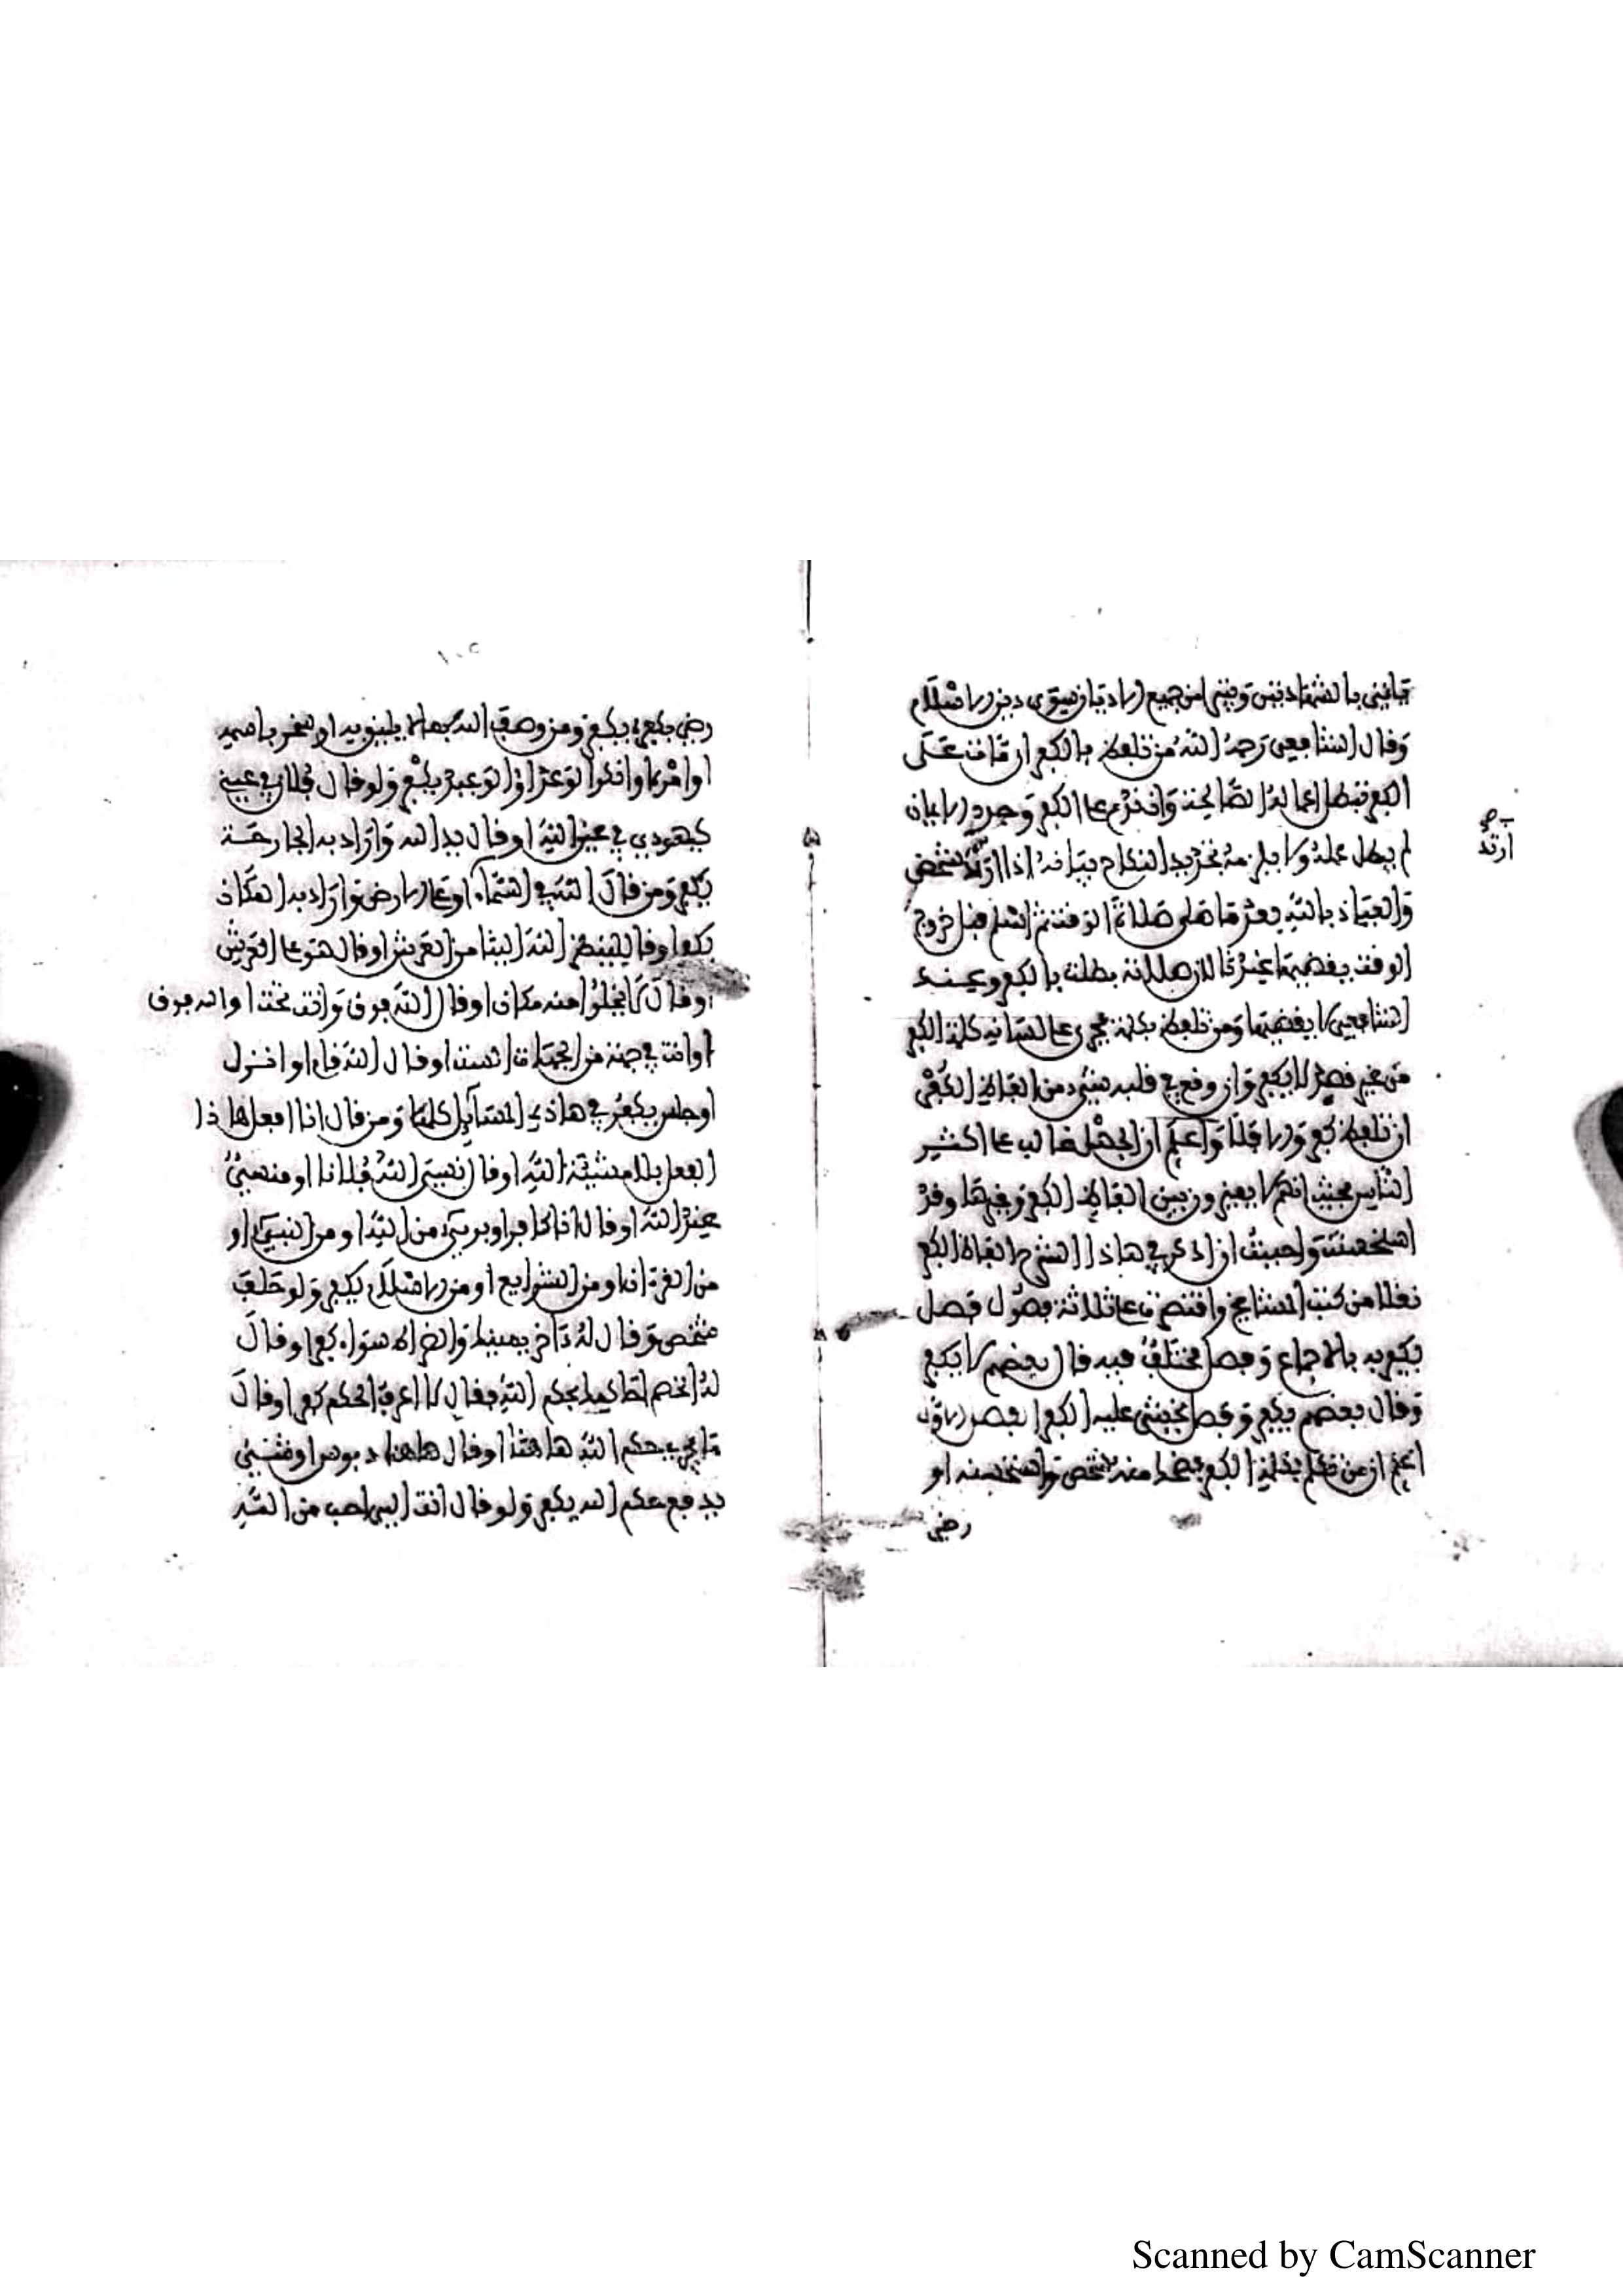 بالشهادتين من جميع الاديان سوى دين الاسلام
وقال الشافعي رحمه الله من تلفظ بالكفر ان مات على
الكفر تبطل اعماله الصالحة وان ندم على الكفر وجدد الايمان
لم يبطل عمله ولا يلزمه تجديد النكاح بيانه اذا ارتد شخص
صح
ارتد
والعياذ بالله بعد ما صلى صلاة الوقت ثم اسلم قبل خروج
الوقت يقضيها عندنا لان صلاته بطلت بالكفر وعند
الشافعي لا يقضيها ومن تلفظ بكلمة تجري على لسانه كلمة الكفر
من غير قصد لا يكفر وان وقع في قلبه شيء من الفاظ الكفر
ان تلفظ كفر والا فلا واعلم ان الجهل غالب على اكثر
الناس بحيث انهم لا يميزون بين الفاظ الكفر وغيرها وقد
استحسنت واحببت ان اذكر في هاذا الشرح الفاظ الكفر
نقلا من كتب المشايخ واقتصرت على ثلاثة فصول فصل
يكفر به بالاجماع وفصل مختلف فيه قال بعضهم لا يكفر
وقال بعضهم يكفر وفصل يخشى عليه الكفر الفصل الاول
اعلم ان من تكلم بلفظ الكفر فضحك منه شخص واستحسنه او
رضي
١٠٥
رضي بكفره يكفر ومن وصف الله بما لا يليق به او سخر باسمه
او امره او انكر الوعد او الوعيد يكفر ولو قال فلان في عيني
كيهودي في عين الله او قال يد الله واراد به الجارحة
يكفر ومن قال الله في السماء او على الارض واراد به المكان
يكفر او قال ينظر الله الينا من العرش او قال هو على العرش
او قال لا يخلوا منه مكان او قال الله فوق وانت تحت او انه فوق
او انت في جهة من الجهات الست او قال الله قام او انزل
او جلس يكفر في هاذه المسايل كلها ومن قال انا افعل هاذا
الفعل بلا مشيئة الله او قال نسي الله فلانا او منسي
عند الله او قال انا كافر او بريء من الله او من النبي او
من القرءان او من الشرايع او من الاسلام يكفر ولو حلف
شخص وقال له ءاخر يمينك والضراط سواء كفر او قال
له الخصم بحكم الله فقال لا اعرف الحكم كفر او قال
ما يجري حكم الله هاهنا او قال هاهنا دبوس
حكم الله يكفر ولو قال انت الي احب من الله
Scanned by CamScanner